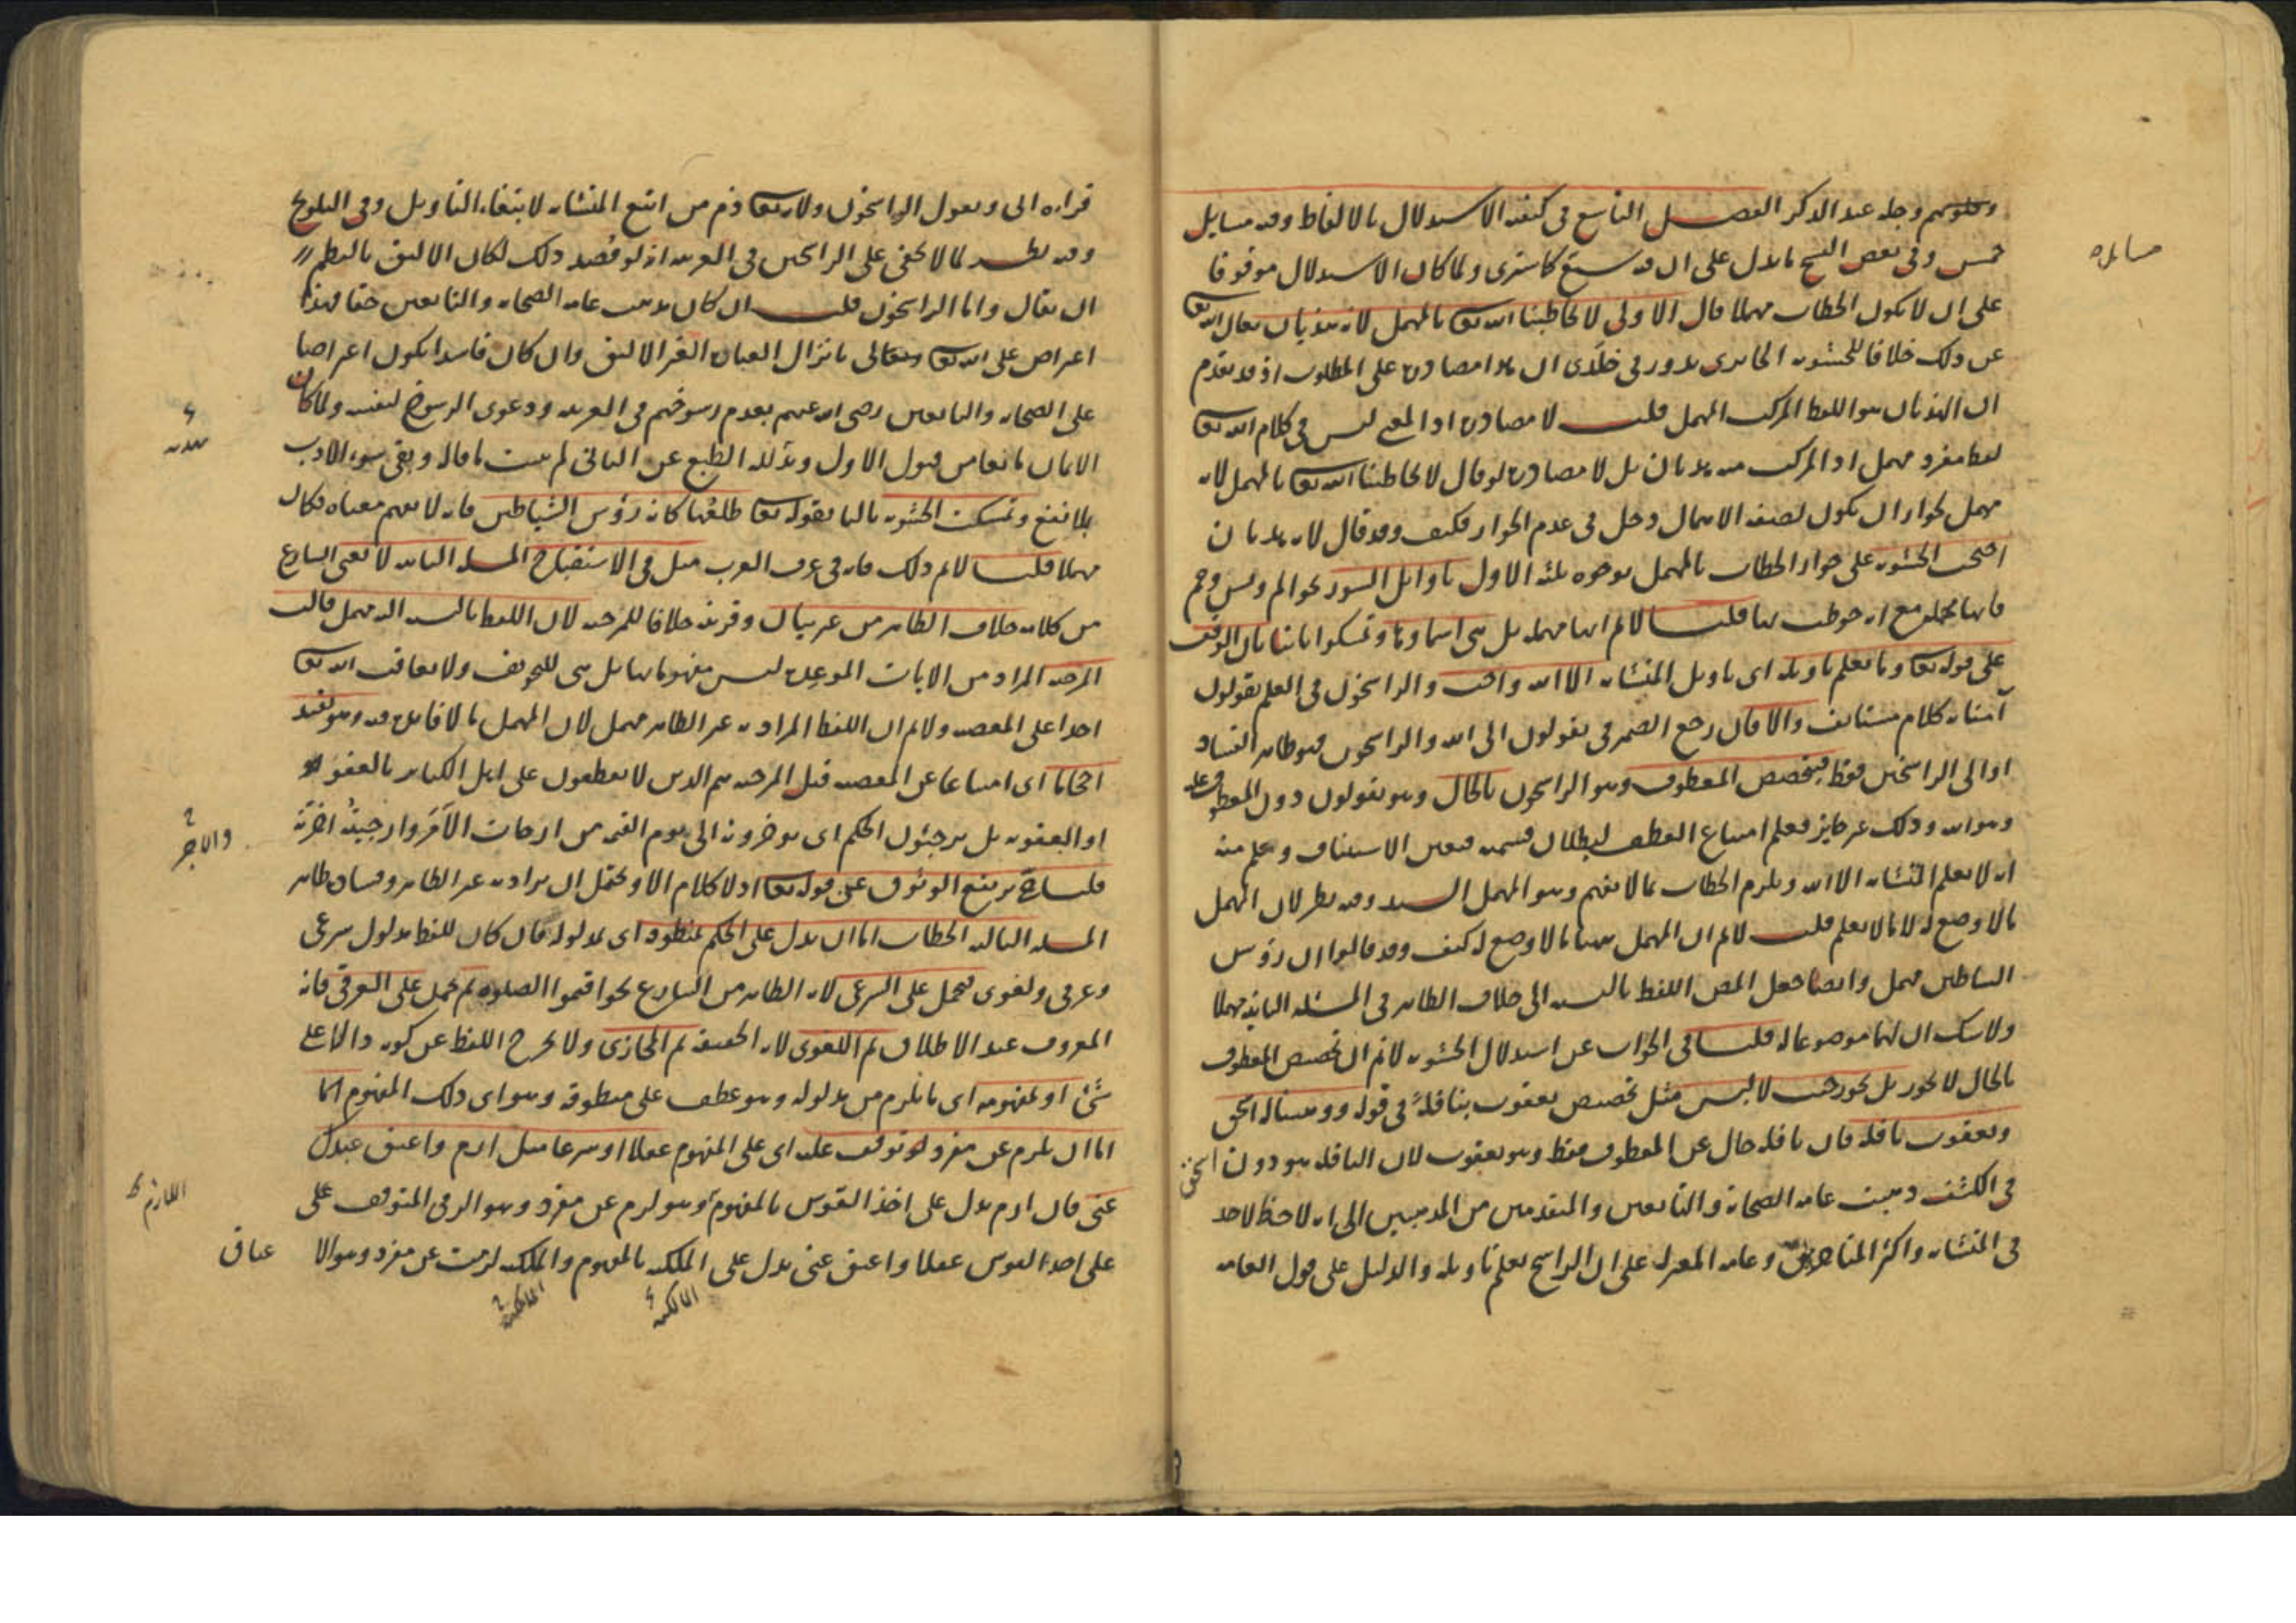 وقلوبهم وجلة عند الذكر الفصل التاسع في كيفية الاستدلال بالالفاظ وفيه مسايل
خمس وفي بعض النسخ ما يدل على ان فيه سبع كما سترى ولما كان الاستدلال موقوفا
على ان لا يكون الخطاب مهملا قال الاولى لا يخاطبنا الله تعا بالمهمل لانه هذيان تعالى الله تعا
عن ذلك خلافا للحشوية الحائري يدور في خلدي ان هذا مصادرة على المطلوب اذ قد تقدم
ان الهذيان هو اللفظ المركب المهمل قلت لا مصادرة اذ المعنى ليس في كلام الله تعا
لفظ مفرد مهمل اذ المركب منه هذيان بل لا مصادرة لو قال لا يخاطبنا الله تعا بالمهمل لانه
مهمل لجواز ان يكون لصفة الاهمال دخل في عدم الجواز فكيف وقد قال لانه هذيان
احتجت الحشوية على جواز الخطاب بالمهمل بوجوه ثلثة الاول باوايل السور نحو الم ويس وحم
فانها مهملة مع انه خوطب بها قلنا لا نم انها مهملة بل هي اسماؤها وتمسكوا ثانيا بان الوقف
على قوله تعا وما يعلم تاويله اي تاويل المتشابه الا الله واجب والراسخون في العلم يقولون
آمنا به كلام مستانف والا فان رجع الضمير في يقولون الى الله والراسخون فهو ظاهر الفساد
او الى الراسخين فقط فيخصص المعطوف وهو الراسخون بالحال وهو يقولون دون المعطوف عليه
وهو الله وذلك غير جايز فعلم امتناع العطف لبطلان قسميه فتعين الاستيناف وعلم منه
انه لا يعلم المتشابه الا الله ويلزم الخطاب بما لا يفهم وهو المهمل السيد وفيه نظر لان المهمل
ما لا وضع له لا ما لا يعلم قلت لا نم ان المهمل ههنا ما لا وضع له كيف وقد قالوا ان رؤس
الشياطين مهمل وايضا جعل المص اللفظ بالنسبة الى خلاف الظاهر في المسئلة الثانية مهملا
ولا شك ان لهما موضوعا له قلنا في الجواب عن استدلال الحشوية لا نم ان تخصيص المعطوف
بالحال لا يجوز بل يجوز حيث لا لبس مثل تخصيص يعقوب بنافلةً في قوله ووهبنا له اسحق
ويعقوب نافلة فان نافلة حال عن المعطوف فقط وهو يعقوب لان النافلة هو دون اسحق
في الكشف ذهبت عامة الصحابة والتابعين والمتقدمين من المذهبين الى انه لا حظ لاحد
في المتشابه واكثر المتاخرين وعامة المعتزلة على ان الراسخ يعلم تاويله والدليل على قول العامة
مسايله
قراءة ابي ويقول الراسخون ولانه تعا ذم من اتبع المتشابه لابتغاء التاويل وفي التلويح
وفيه نظر لما لا يخفى على الراسخين في العربية اذ لو قُصد ذلك لكان الاليق بالنظم
ان يقال واما الراسخون قلت ان كان مذهب عامة الصحابة والتابعين حقا فهذا
اعراض على الله تعا وتعالى بانزال العبارة الغير الاليق وان كان فاسدا يكون اعتراضا
على الصحابة والتابعين رضي الله عنهم بعدم رسوخهم في العربية ودعوى الرسوخ لنفسه ولما كان
بلا نفع وتمسكت الحشوية ثالثا بقوله تعا طلعها كانه رؤس الشياطين فانه لا يفهم معناه فكان
مهملا قلنا لا نم ذلك فانه في عرف العرب مثل في الاستقباح المسئلة الثانية لا يعني الشارع
من كلامه خلاف الظاهر من غير بيان وقرينة خلافا للمرجئة لان اللفظ بالنسبة اليه مهمل قالت
المرجئة المراد من الآيات الموعدة ليس مفهوماتها بل هي للتخويف ولا يعاقب الله تعا
احدا على المعصية ولا نم ان اللفظ المراد به غير الظاهر مهمل لان المهمل ما لا فائدة فيه وهو يفيد
احجاما اي امتناعا عن المعصية قيل المرجئة هم الذين لا يقطعون على اهل الكبائر بالعفو
او العقوبة بل يرجئون الحكم اي يؤخرونه الى يوم القيمة من ارجات الامر وارجيته اخرته
قلنا ح يرتفع الوثوق على قوله تعا اذ لا كلام الا ويحتمل ان يراد به غير الظاهر وفساده ظاهر
المسئلة الثالثة الخطاب اما ان يدل على الحكم بمنطوقه اي بمدلوله فان كان للفظ مدلول شرعي
وعرفي ولغوي فيحمل على الشرعي لانه الظاهر من الشارع نحو اقيموا الصلوة ثم يحمل على العرفي فانه
المعروف عند الاطلاق ثم اللغوي لانه الحقيقة ثم المجازي ولا يخرج اللفظ عن كونه دالا على
شئ او بمفهومه اي ما يلزم من مدلوله وهو عطف على منطوقه وهو اي ذلك المفهوم اما
اما ان يلزم عن مفرد لو توقف عليه اي على المفهوم عقلا او شرعا مثل ارم واعتق عبدك
عني فان ارم يدل على اخذ القوس بالمفهوم وهو لزم عن مفرد وهو الرمي المتوقف على
على اخذ القوس عقلا واعتق عني يدل على الملكية بالمفهوم والملكية لزمت عن مفرد وهو الا
عتاق
المالكية
المالكية